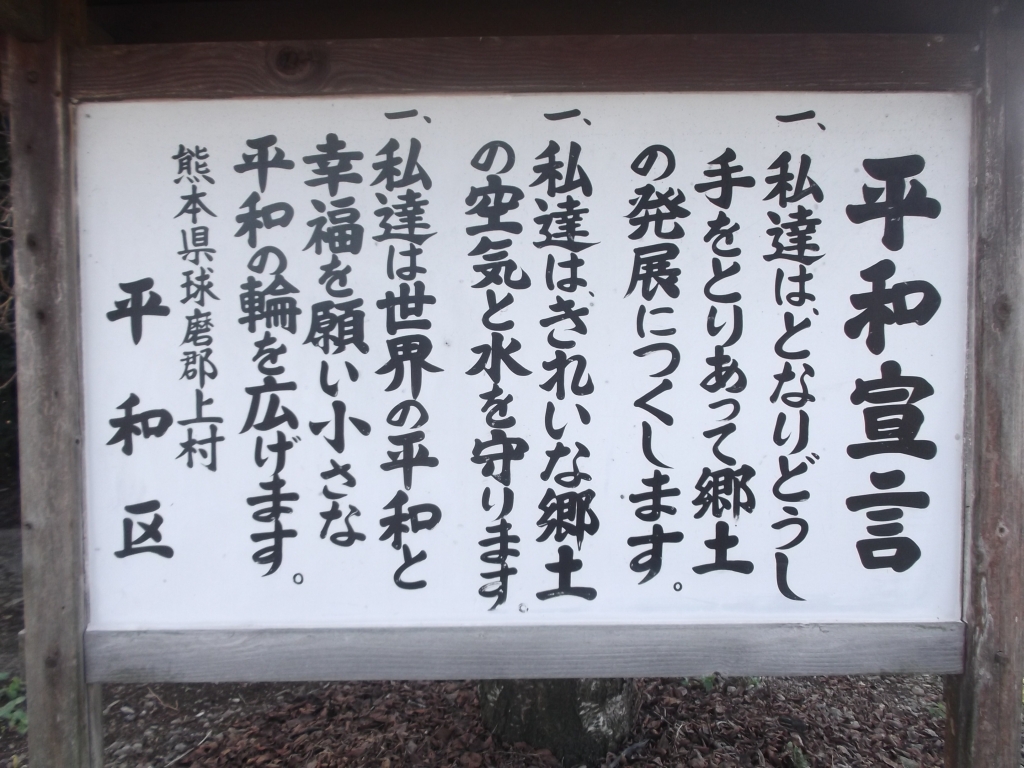 平和宣言
一、私達はどなりどうし
手をとりあって郷土
の発展につくします。
一、私達は、きれいな郷土
の空気と水を守ります。
一、私達は世界の平和と
幸福を願い小さな
平和の輪を広げます。
熊本県球磨郡上村
平和区